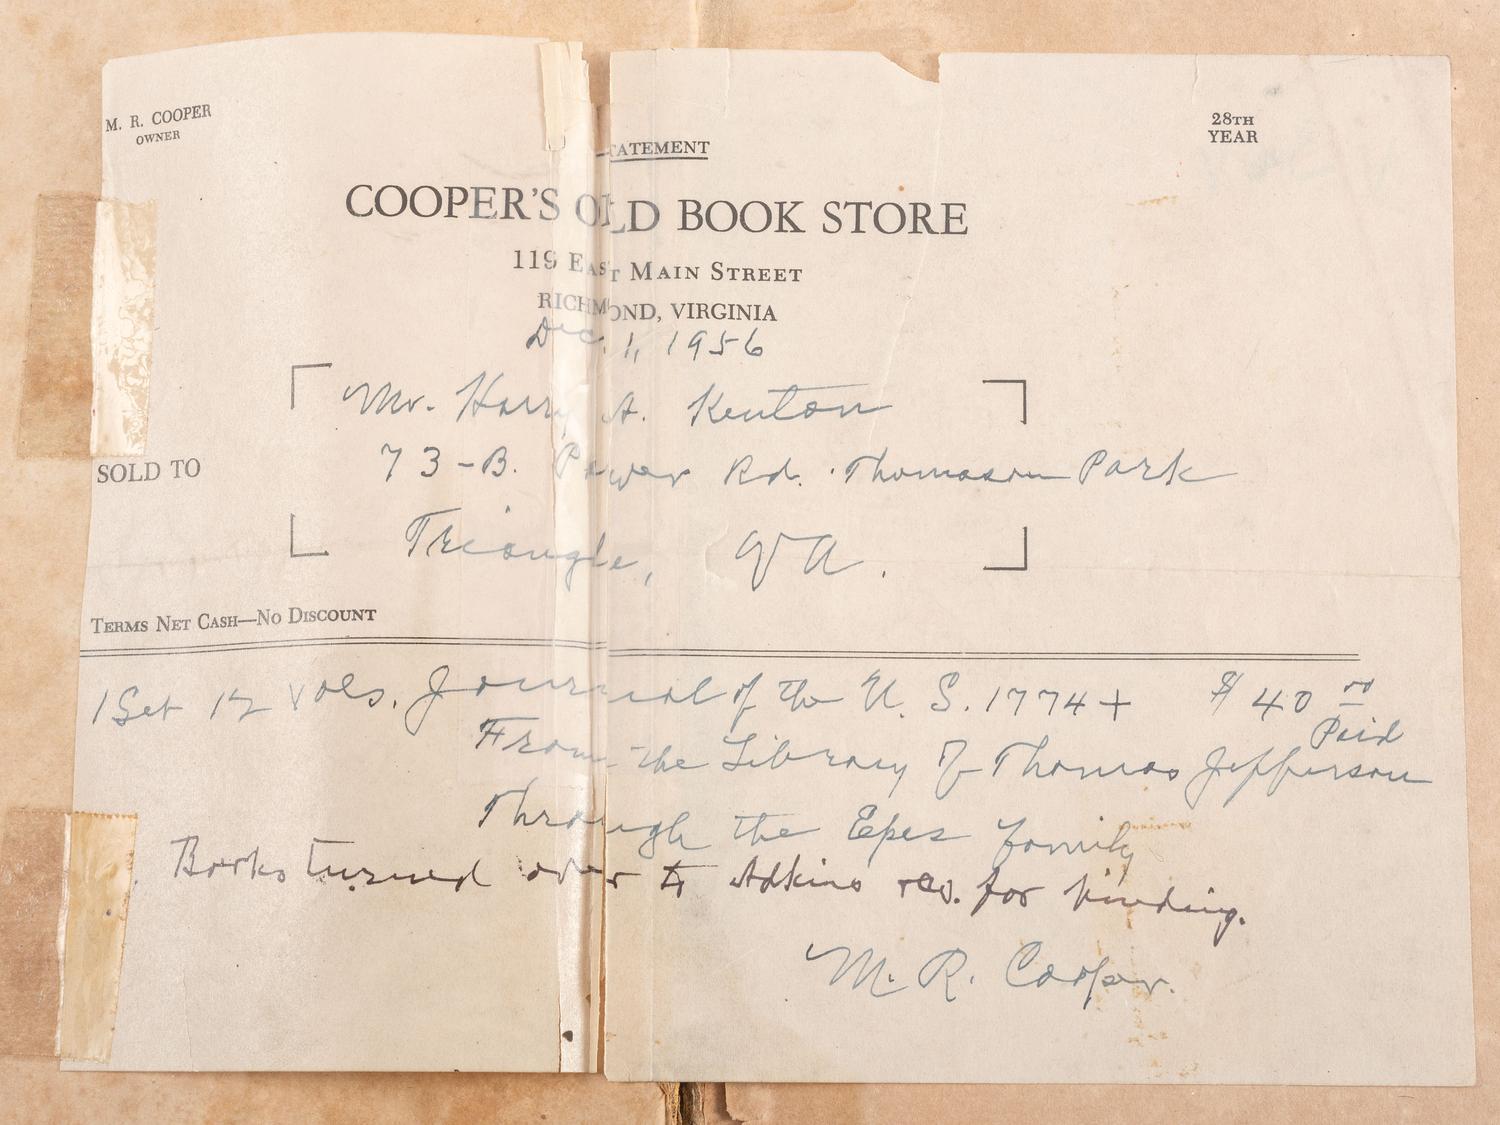 M. R. COOPER
OWNER
28TH
YEAR
STATEMENT
COOPER'S OLD BOOK STORE
119 EAST MAIN STREET
RICHMOND, VIRGINIA
Dec. 1, 1956
Mr. Harry A. Kenton
SOLD TO
73-B. Power Rd. Thomason Park
Triangle, VA.
TERMS NET CASH—NO DISCOUNT
1 Set 12 Vols. Journal of the U. S. 1774 + $ 40 00
Paid
From the Library of Thomas Jefferson
Through the Epes family
Books turned over to Adkins for binding.
M. R. Cooper.